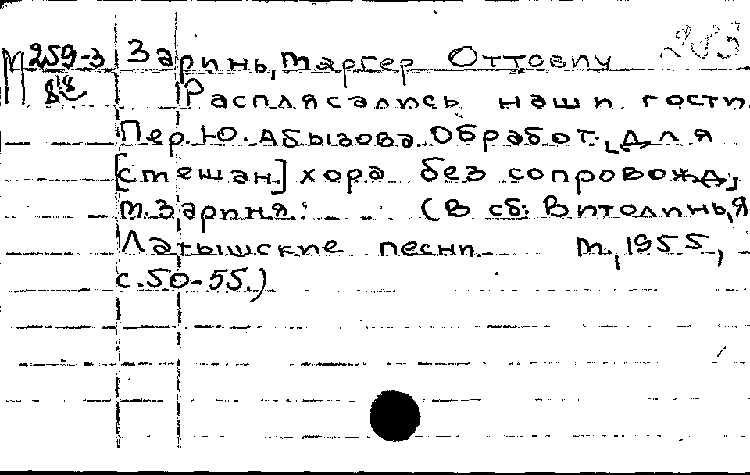 М 259-3 Заринь, Маргер Оттович
Расплясались наши гости.
Пер. Ю. Абызова. Обработ. для
[смешан.] хора без сопровожд.
М. Зариня. (В сб: Витолинь, Я
Латышские песни. М., 1955,
с. 50-55.)